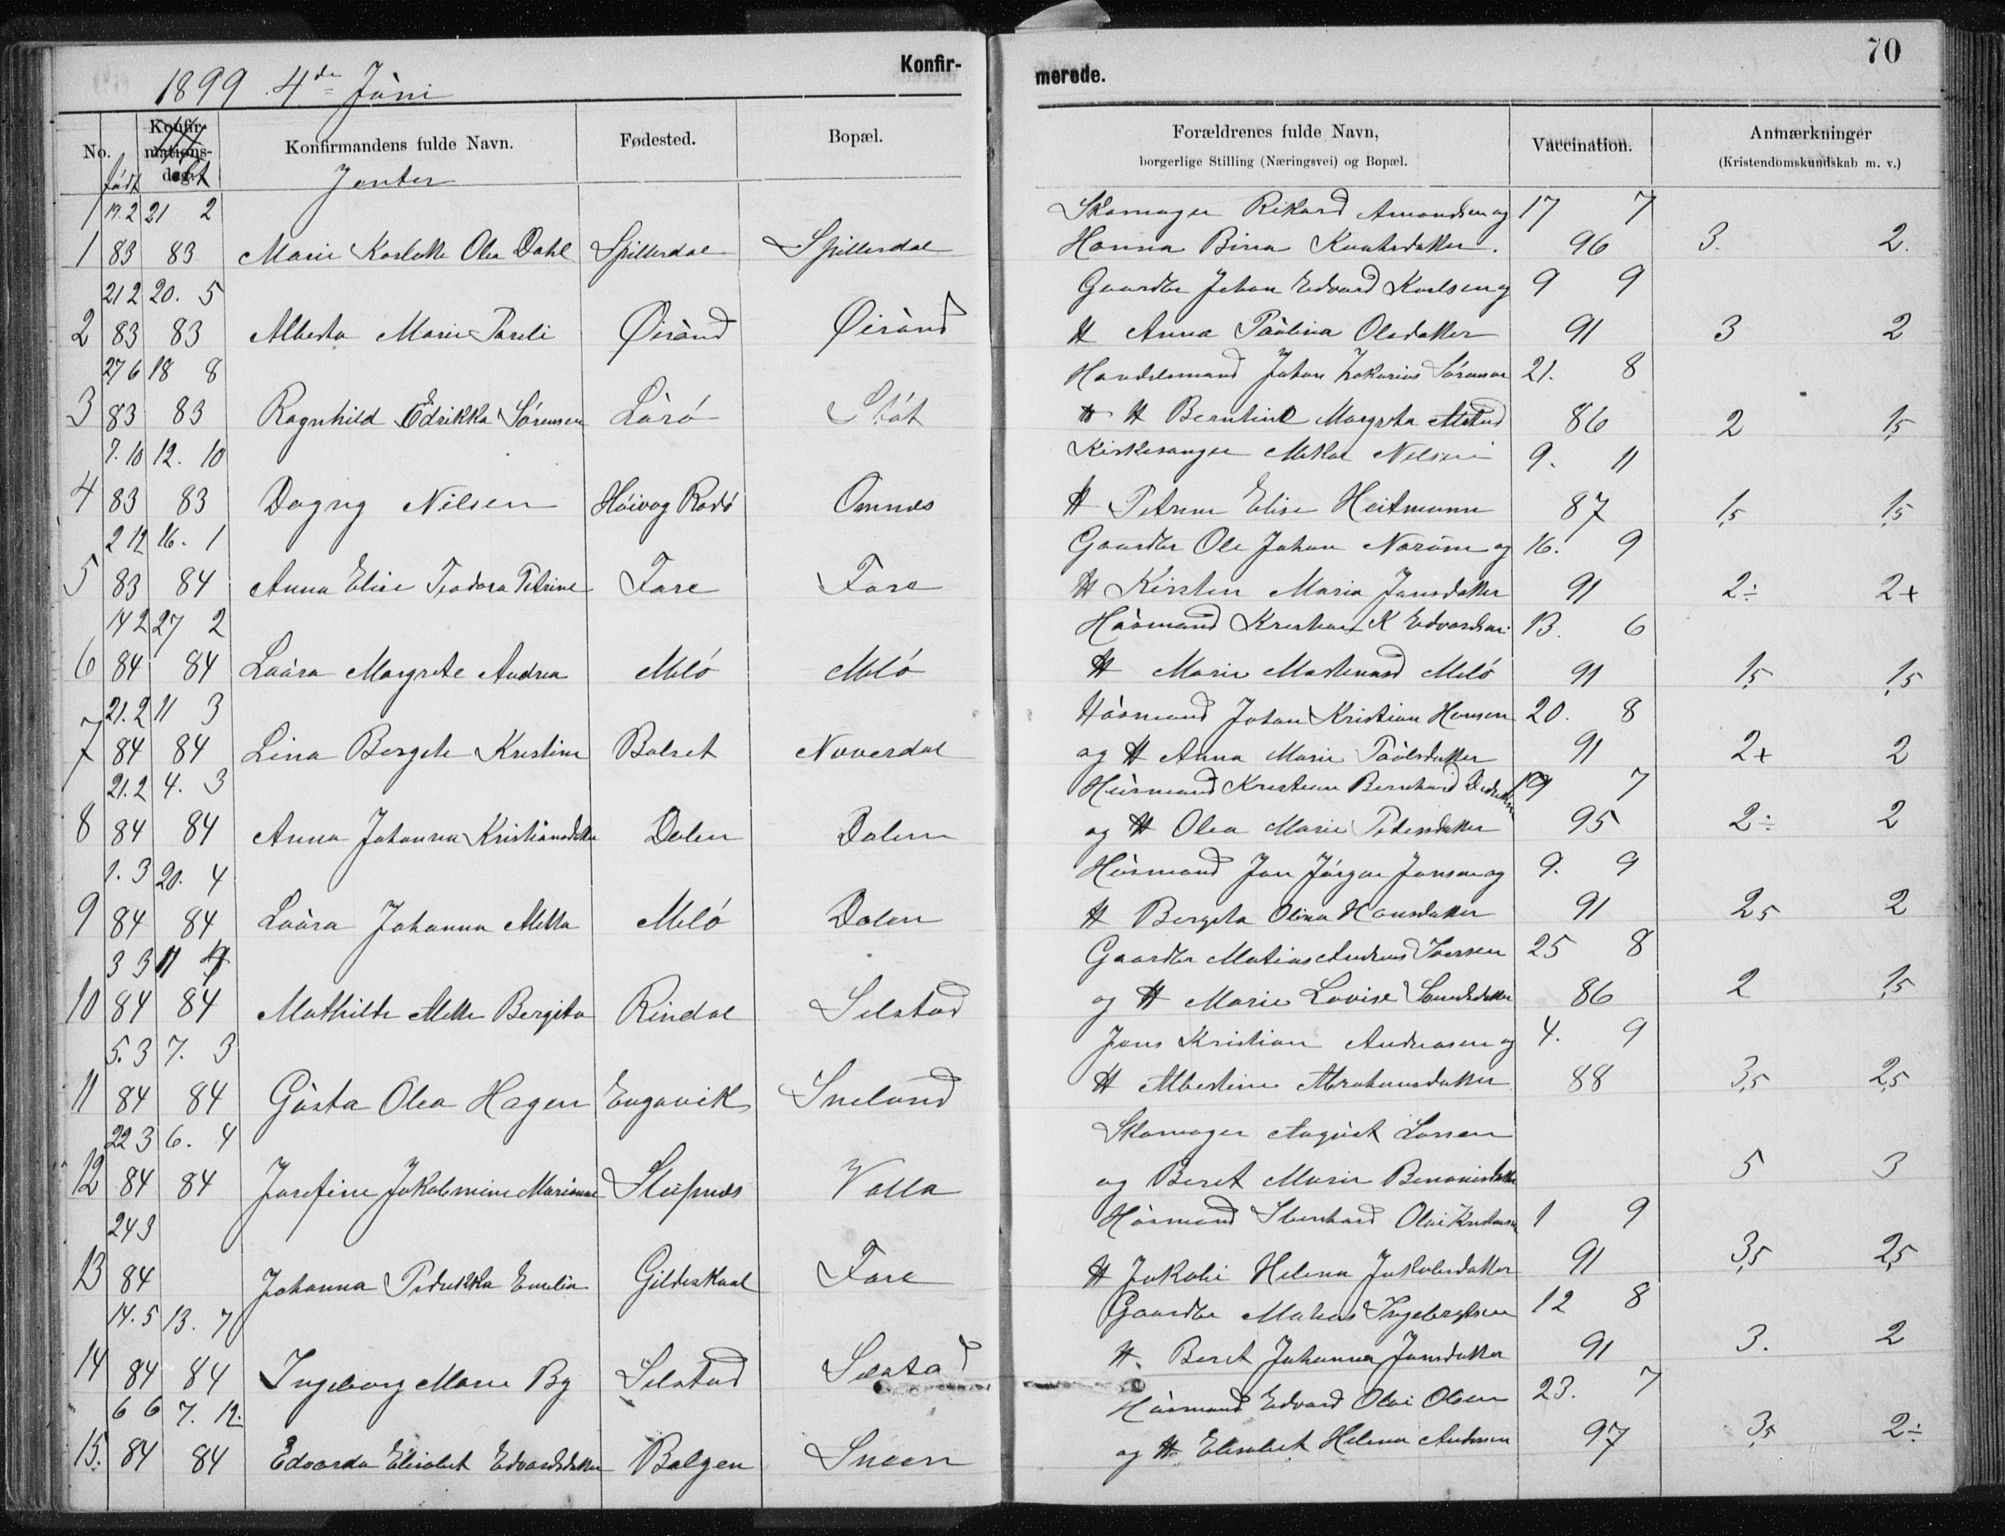 Konfir-
merede.
70
1899 4de Júni
No.
født
Konfir-
mations-
dag.
Konfirmandens fulde Navn.
Fødested.
Bopæl.
Forældrenes fulde Navn,
borgerlige Stilling (Næringsvei) og Bopæl.
Vaccination.
Anmærkninger
(Kristendomskundskab m. v.)
Jenter
19.2 21 2 Skomager Rikard Amondsen og 17 7
1 83 83 Marie Karlotte Olea Dahl Spilderdal Spilderdal Hanna Birna 96 3. 2.
21 2 20. 5 Gaardbr Johan Edvard Karlsen og 9 9
2 83 83 Alberta Marie Øisúnd Øisúnd H Anna Paúlina Olsdatter 91 3 2
27 6 18 8 Handelsmand Johan Zakarias Sørensen 21. 8
3 83 83 Ragnhild Edrikka Sørensen Lúrö Støt H Berntine Margreta 86 2 1,5
7. 10 12. 10 Kirkesanger Mikal Nilsen 9. 11
4 83 83 Dagny Nilsen Høivog Rødö Omnes H Petrine Elise Heitmann 87 1,5 1,5
2 12 16. 1 Gaardbr Ole Johan og 16. 9
5 83 84 Anna Elise Teodora Petrine Fore Fore H Kirsten Maria Jensdatter 91 2÷ 2+
14 2 27 2 Húsmand Kristian K Edvardsen 13. 6
6 84 84 Laúra Margrete Andrea Melö Melö H Marie Martinusd Melö 91 1,5 1,5
21. 2 11 3 Húsmand Johan Kristian Hansen 20. 8
7 84 84 Lina Bergete Kristine Bolset Noverdal og H Anna Marie Paúlsdatter 91 2+ 2
21. 2 4. 3 Húsmand Kristian Bernhard 19 7
8 84 84 Anna Johanna Kristiansdatter Dalen Dalen og H Olea Marie Pedersdatter 95 2÷ 2
1. 3 20. 4 Húsmand Jan Jørgen Jonsen og 9. 9
9 84 84 Laúra Johanna Metta Melö Dalen H Bergeta Olina Hansdatter 91 2,5 2
3 3 11 4 Gaardbr Matias Andreas Iversen 25 8
10 84 84 Mathilde Mette Bergita Rindal Selstad og H Marie Lovise 86 2 1,5
5. 3 7. 3 Jens Kristian Andreasen og 4. 9
11 84 84 Gústa Olea Hagen Engavik Snelúnd H Albertine Abrahamsdatter 88 3,5 2,5
22 3 6. 4 Skomager Aúgúst Larsen
12 84 84 Josefine Jakobmine Marianne Sleipnes Valla og Beret Marie Benonisdatter 5 3
24 3 Húsmand Olai Kristensen 1 9
13 84 Johanna Pedrikka Emelia Gildeskaal Fore H Jakobi Helena Jakobsdatter 91 3,5 2,5
14. 5 13. 7 Gaardbr Matias Ingebrigtsen 12 8
14 84 84 Ingeborg Marie By Selstad Selstad H. Beret Johanna Jonsdatter 91 3. 2
6 6 7. 12. Húsmand Edvard Olai Olsen 23. 7
15. 84 84 Edvarda Elisabet Edvardsdatter Bolgen Sneen og H Elisabet Helena Andersen 97 3,5 2÷